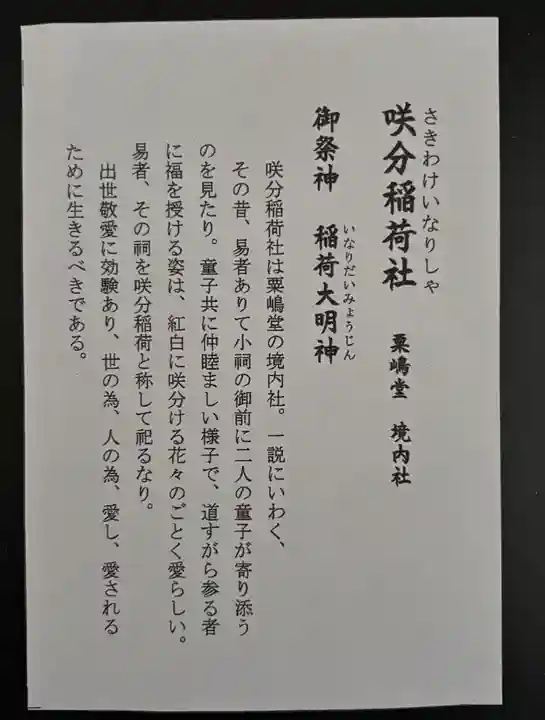 さきわけいなりしゃ
咲分稲荷社　粟嶋堂　境内社
いなりだいみょうじん
御祭神　稲荷大明神
咲分稲荷社は粟嶋堂の境内社。一説にいわく、
その昔、易者ありて小祠の御前に二人の童子が寄り添う
のを見たり。童子共に仲睦ましい様子で、道すがら参る者
に福を授ける姿は、紅白に咲分ける花々のごとく愛らしい。
易者、その祠を咲分稲荷と称して祀るなり。
出世敬愛に効験あり、世の為、人の為、愛し、愛される
ために生きるべきである。